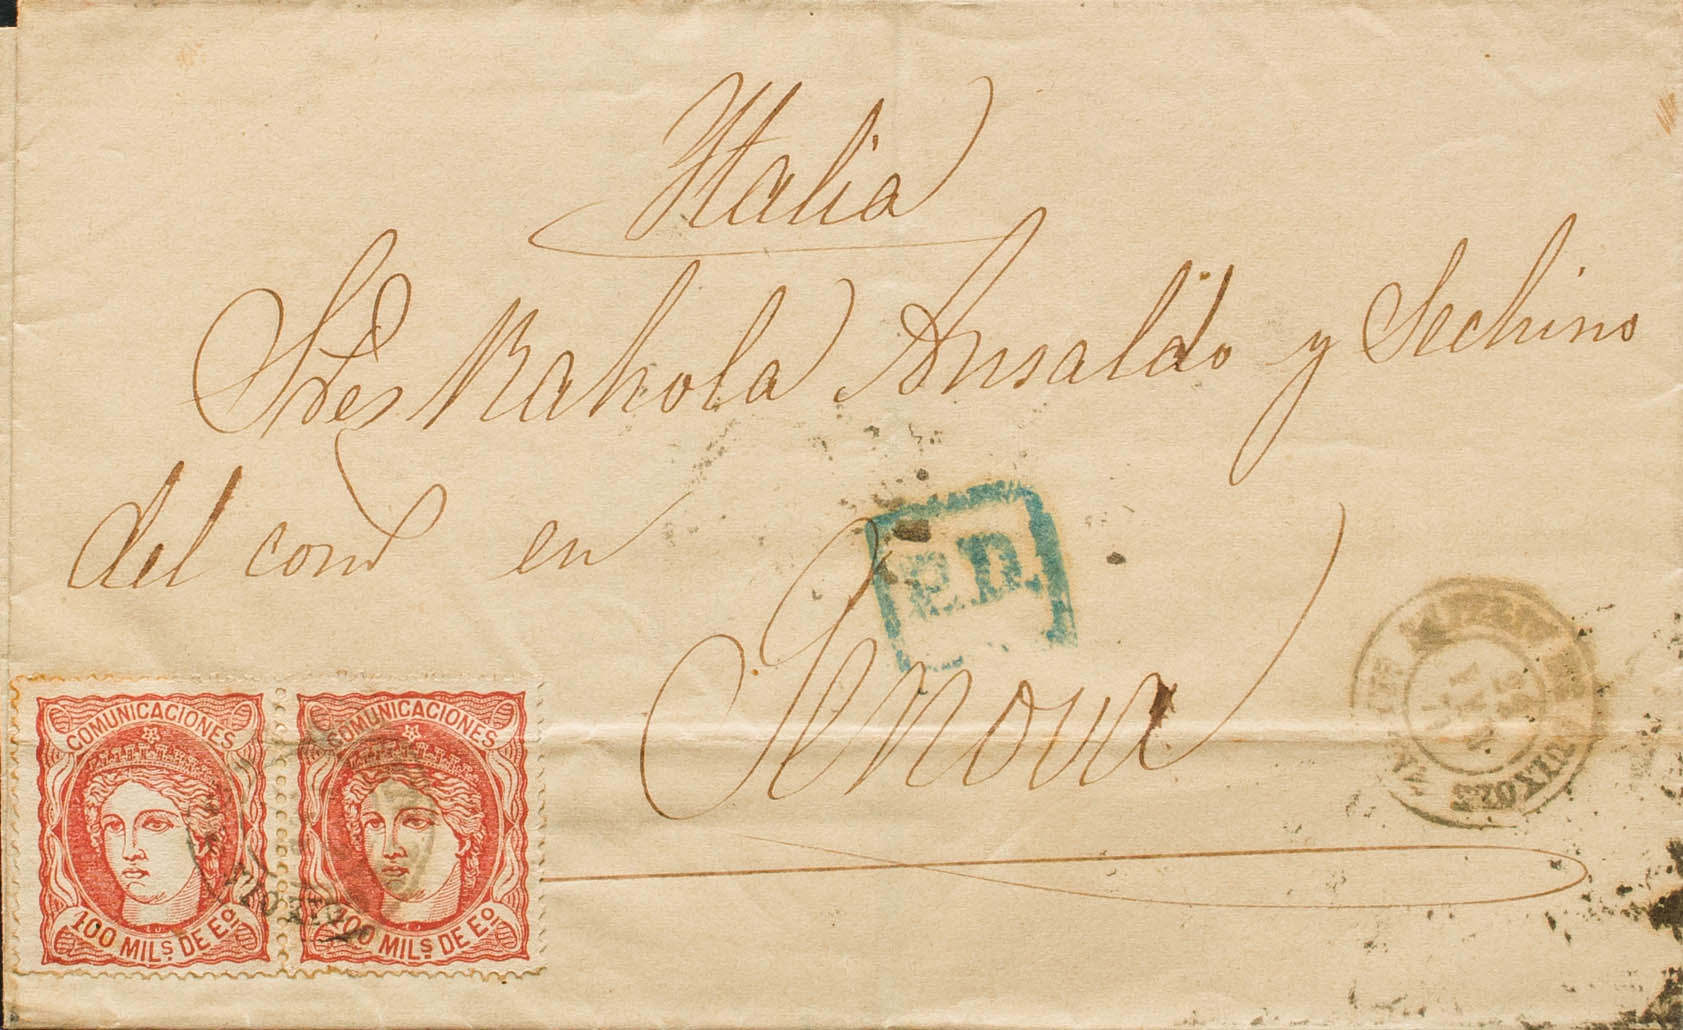 Italia
Sres Rahola Ansaldo y Sechino
del com en
P.D.
Genova
COMUNICACIONES COMUNICACIONES
400 MILS DE Eo 400 MILS DE Eo